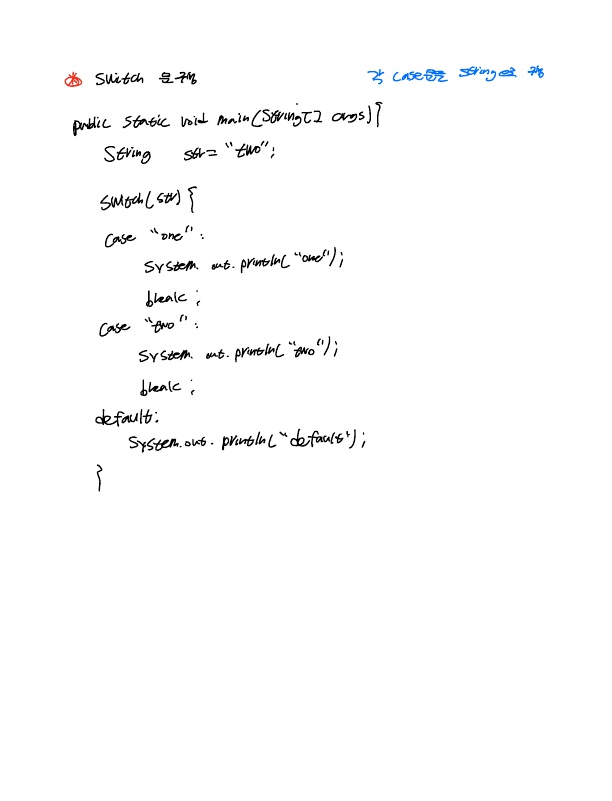 Switch 문 구현
각 case문을 String으로 구현
public static void main(String[] args){
String str = "two";
switch(str) {
case "one":
System.out.println("one");
break;
case "two":
System.out.println("two");
break;
default:
System.out.println("default");
}